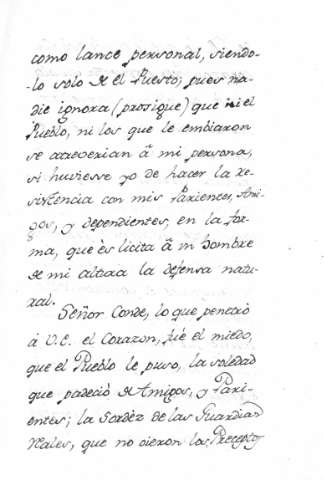 como lance personal, siendo-
-lo solo de el Puesto; pues na-
die ignora (prosigue) que ni el
Pueblo, ni los que le embiaron
se atreverian â mi persona,
si huviesse yo de hacer la re-
sistencia con mis Parientes, Ami-
gos, y dependientes, en la for-
ma, que ès licita â un hombre
de mi altura la defensa natu-
ral.
Señor Conde, lo que penetrò
â V.E. el Corazon, fué el miedo,
que el Pueblo le puso, la soledad
que padeciò de Amigos, y Pari-
entes; la Sordèz de las Guardias
Reales, que no oieron los Preceptos